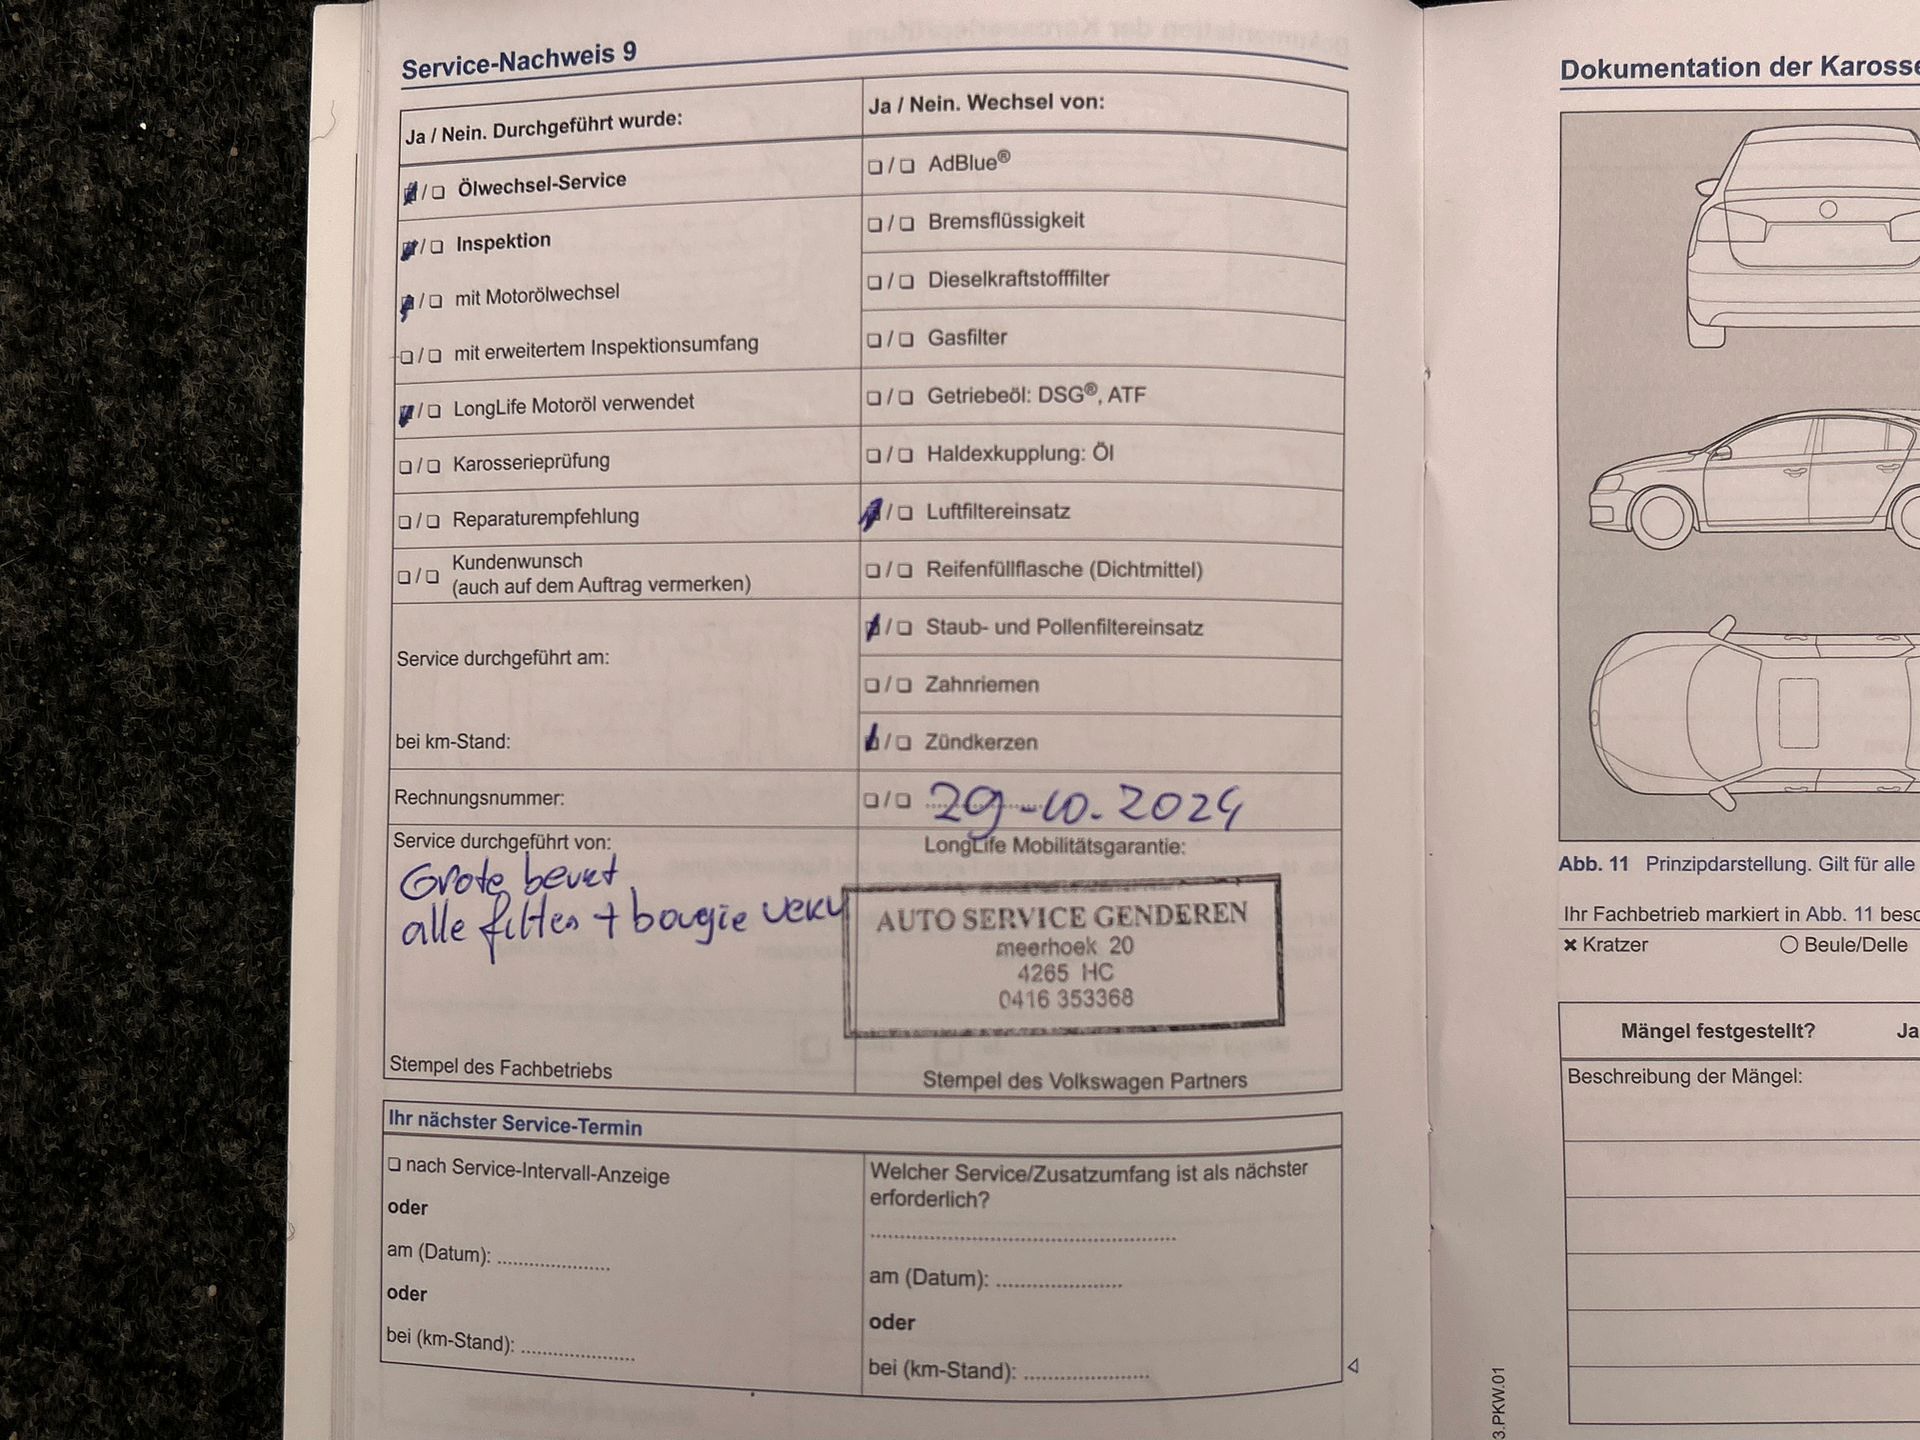 Service-Nachweis 9
Ja / Nein. Durchgeführt wurde:
Ölwechsel-Service
Inspektion
mit Motorölwechsel
mit erweitertem Inspektionsumfang
LongLife Motoröl verwendet
Karosserieprüfung
Reparaturempfehlung
Kundenwunsch
(auch auf dem Auftrag vermerken)
Service durchgeführt am:
bei km-Stand:
Rechnungsnummer:
Service durchgeführt von:
Grote beurt
alle filters + bougie
Stempel des Fachbetriebs
Ja / Nein. Wechsel von:
AdBlue®
Bremsflüssigkeit
Dieselkraftstofffilter
Gasfilter
Getriebeöl: DSG®, ATF
Haldexkupplung: Öl
Luftfiltereinsatz
Reifenfüllflasche (Dichtmittel)
Staub- und Pollenfiltereinsatz
Zahnriemen
Zündkerzen
29-10.2024
LongLife Mobilitätsgarantie:
AUTO SERVICE GENDEREN
meerhoek 20
4265 HC
0416 353368
Stempel des Volkswagen Partners
Ihr nächster Service-Termin
nach Service-Intervall-Anzeige
oder
am (Datum): ....................
oder
bei (km-Stand): ....................
Welcher Service/Zusatzumfang ist als nächster
erforderlich?
am (Datum): ....................
oder
bei (km-Stand): ....................
Dokumentation der Karosse
Abb. 11 Prinzipdarstellung. Gilt für alle
Ihr Fachbetrieb markiert in Abb. 11 besc
Kratzer
Beule/Delle
Mängel festgestellt? Ja
Beschreibung der Mängel:
3.PKW.01